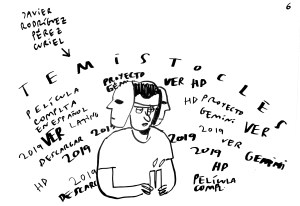 JAVIER
RODRÍGUEZ
PÉREZ
CURIEL
6
TEMÍSTOCLES
PELÍCULA
COMPLTA
EN ESPAÑOL
LATINO
VER
2019
DESCARGAR
2019
HD
2019
DESCAR
PROYECTO
GEMINI
2019
VER HD
HD PROYECTO
GEMINI
VER
2019
VER
2019
GEMINI
HD
PELÍCULA
COMPL